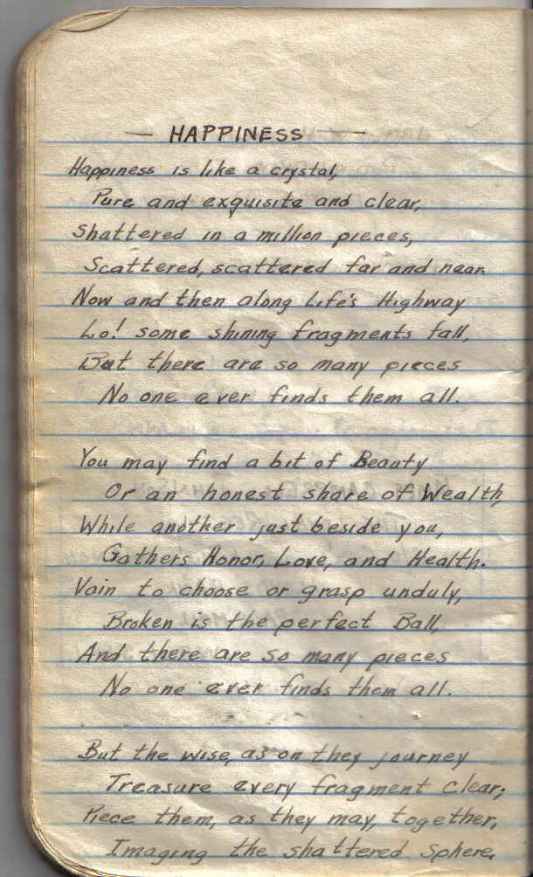 — HAPPINESS —
Happiness is like a crystal,
Pure and exquisite and clear,
Shattered in a million pieces,
Scattered, scattered far and near.
Now and then along Life's Highway
Lo! some shining fragments fall,
But there are so many pieces
No one ever finds them all.
You may find a bit of Beauty
Or an honest share of Wealth,
While another just beside you,
Gathers Honor, Love, and Health.
Vain to choose or grasp unduly,
Broken is the perfect Ball,
And there are so many pieces
No one ever finds them all.
But the wise, as on they journey
Treasure every fragment clear;
Piece them, as they may, together,
Imaging the shattered Sphere,